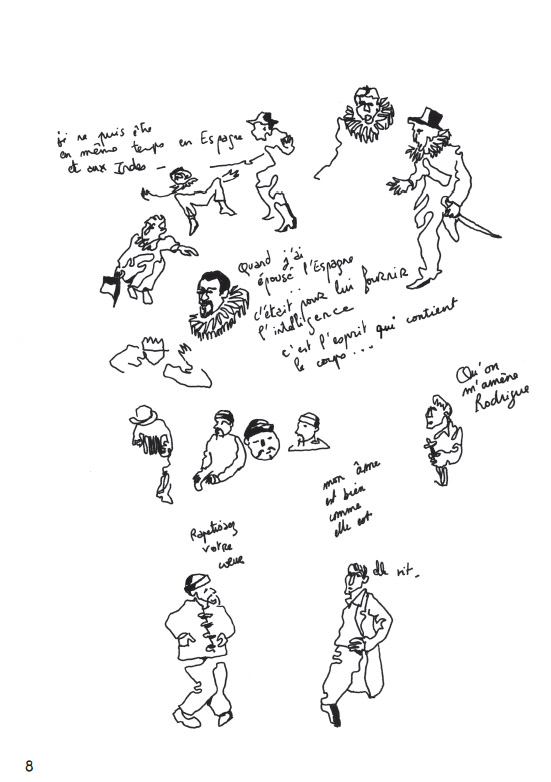 je ne puis être
en même temps en Espagne
et aux Indes —
Quand j'ai
épousé l'Espagne
..
c'était pour lui fournir
l'intelligence
c'est l'esprit qui contient
le corps...
Qu'on
m'amène
Rodrigue
mon âme
est bien
comme
elle est
Rapetissez
votre
cœur
elle rit.
8